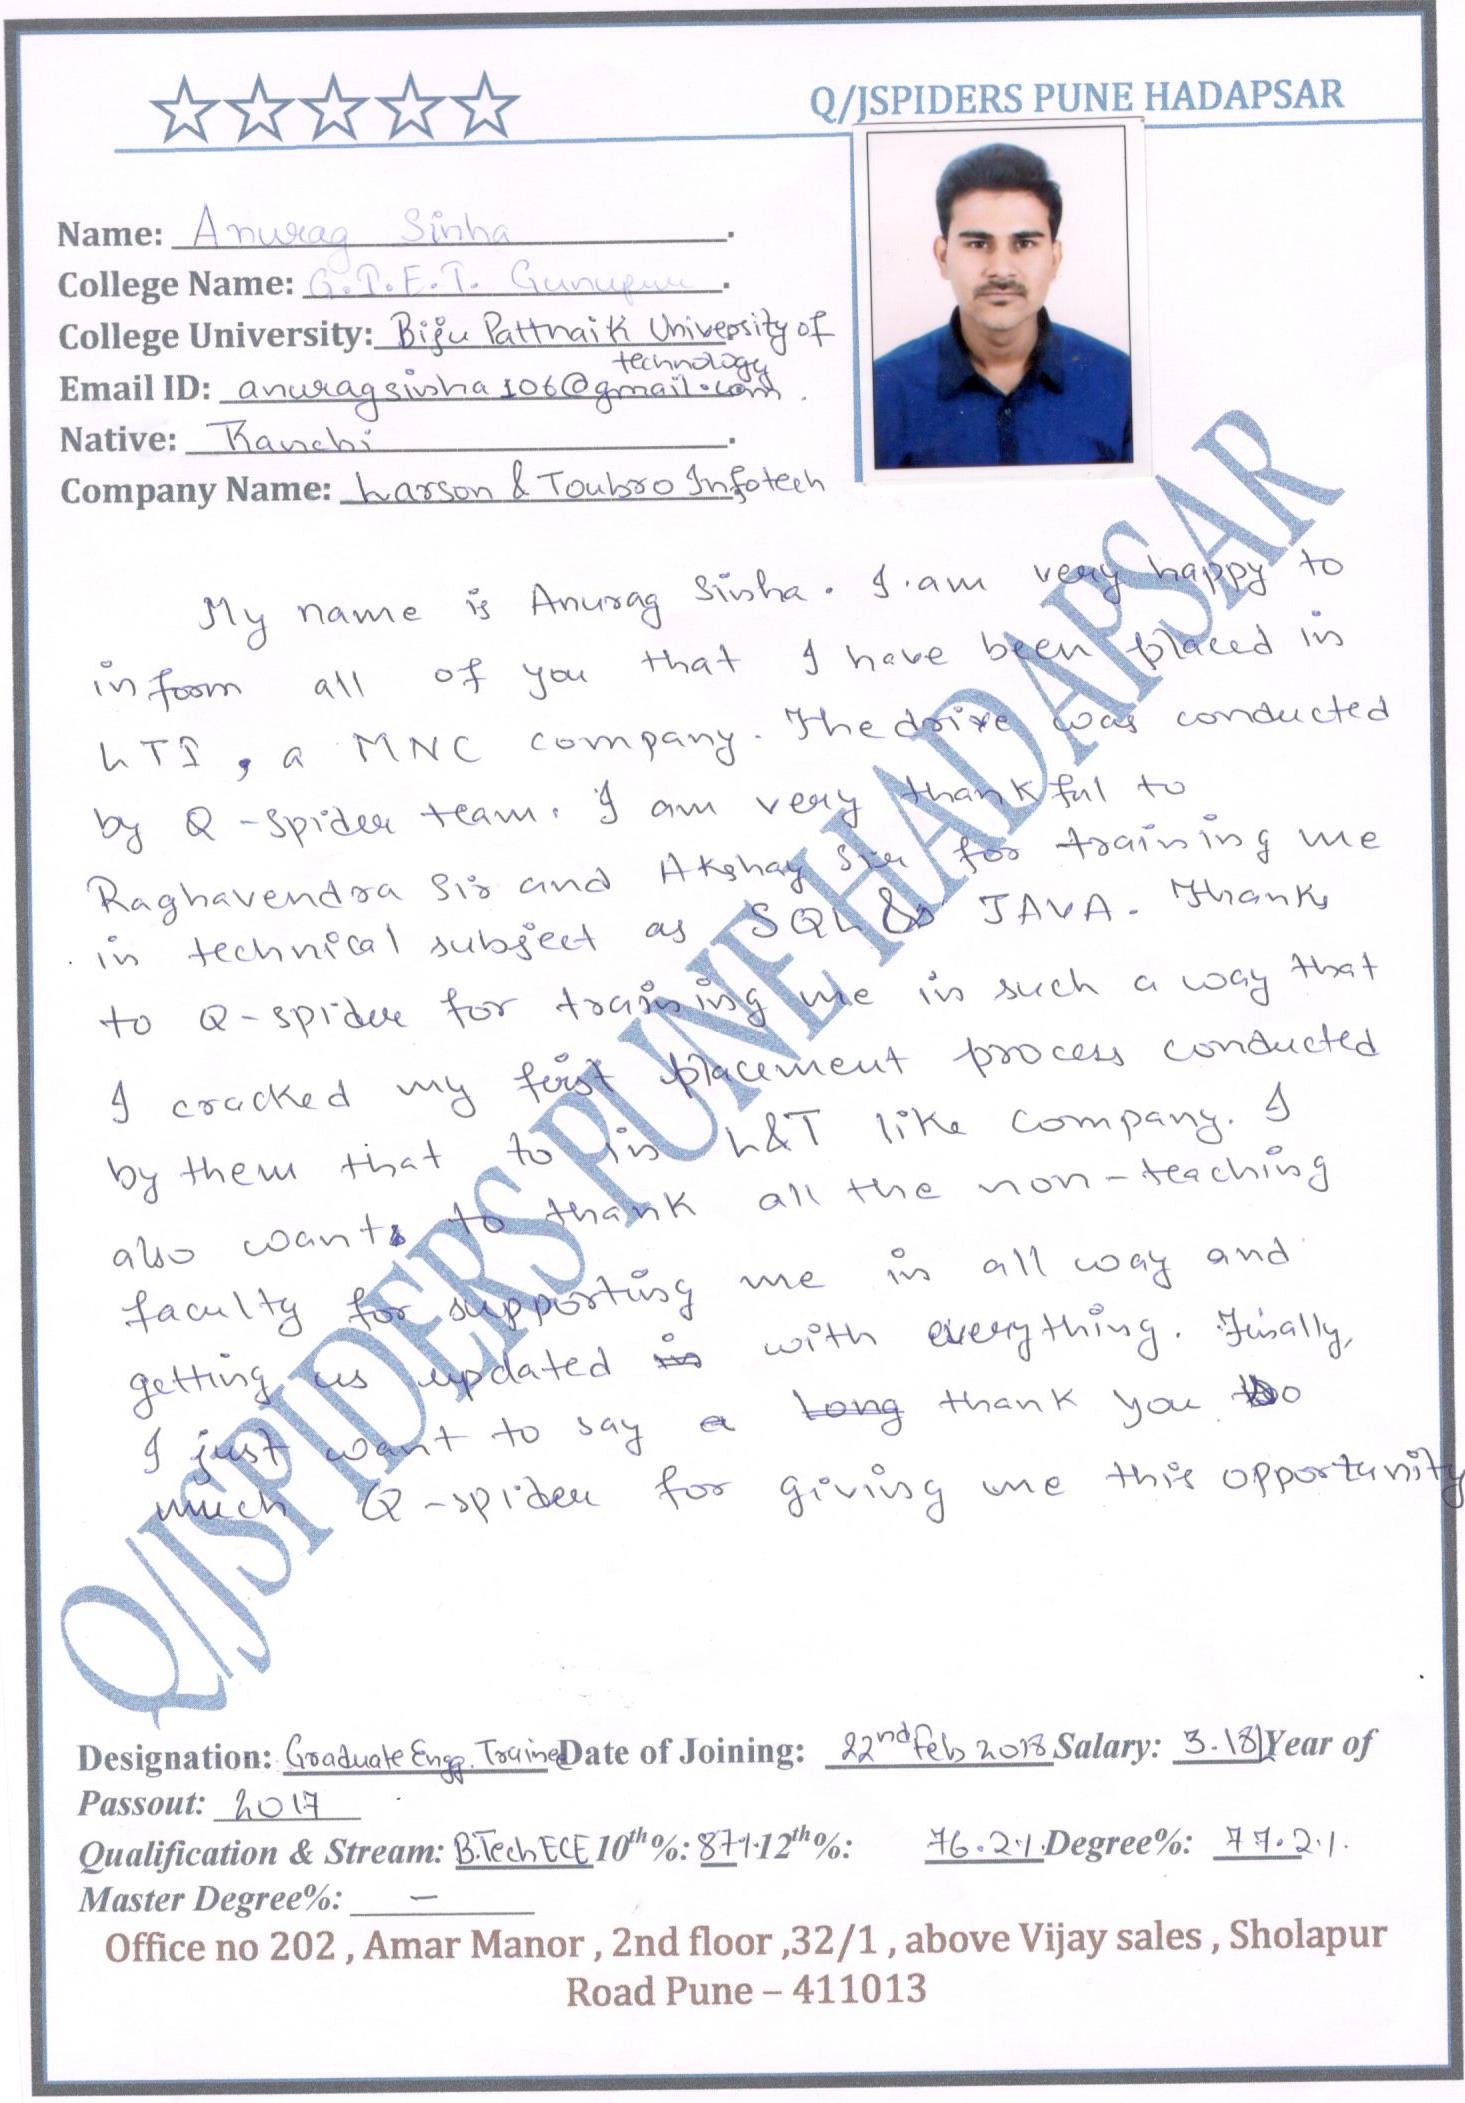 Q/JSPIDERS PUNE HADAPSAR
Name: Anurag Sinha.
College Name: G.I.E.T. Gunupur.
College University: Biju Pattnaik University of
technology
Email ID: anuragsinha106@gmail.com.
Native: Ranchi.
Company Name: Larson & Toubro Infotech
My name is Anurag Sinha. I am very happy to
inform all of you that I have been placed in
LTI, a MNC company. The drive was conducted
by Q-Spider team. I am very thankful to
Raghavendra Sir and Akshay Sir for training me
in technical subject as SQL & JAVA. Thanks
to Q-spider for training me in such a way that
I cracked my first placement process conducted
by them that to in L&T like company. I
also want to thank all the non-teaching
faculty for supporting me in all way and
getting us updated in with everything. Finally,
I just want to say a Long thank you so
much Q-spider for giving me this opportunity
Q/JSPIDERS PUNE HADAPSAR
Designation: Graduate Engg. Trainee Date of Joining: 22nd Feb 2018 Salary: 3.18L Year of
Passout: 2017
Qualification & Stream: B.Tech ECE 10th%: 87% 12th%: 76.2% Degree%: 77.2%.
Master Degree%: —
Office no 202 , Amar Manor , 2nd floor ,32/1 , above Vijay sales , Sholapur
Road Pune – 411013